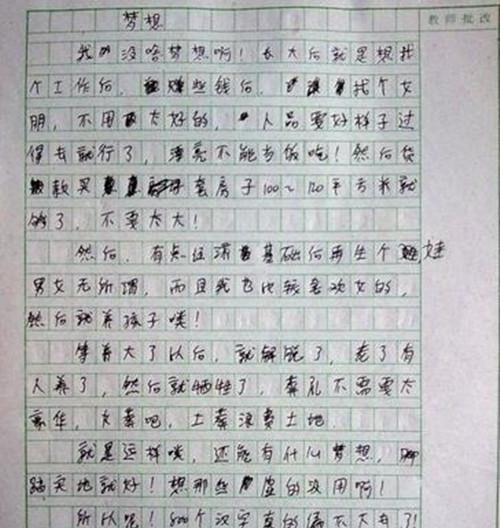 教师批改
梦想
我没啥梦想啊！长大后就是想找
个工作后，赚些钱后，找个女
朋，不用太好的，人品要好样子过
得去就行了，漂亮不能当饭吃！然后贷
款买套房子100~120平方米就
够了，不要太大！
然后，有点经济基础后再生个娃
男女无所谓，而且我也比较喜欢女的，
然后就养孩子喽！
等养大了以后，就解脱了，老了有
人养了，然后就牺牲了，葬礼不需要太
豪华，火葬吧，土葬浪费土地
就是这样喽，还能有什么梦想，脚
踏实地就好！想那些虚的没用啊！
所以呢！800个汉字真的